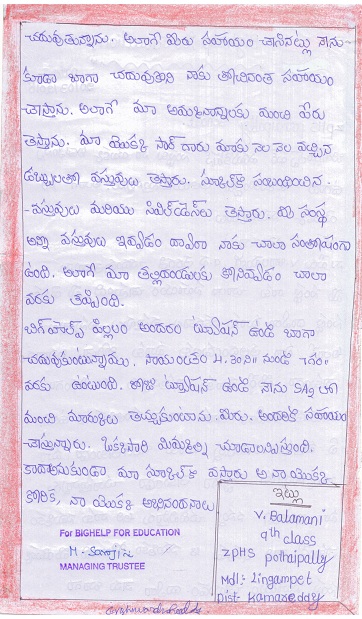 చదువుతున్నాను. అలాగే మీరు సహాయం చేసినట్లు నేను
కూడా బాగా చదువుకుని నాకు తోచినంత సహాయం
చేస్తాను. అలాగే మా అమ్మనాన్నలకు మంచి పేరు
తెస్తాను. మా యొక్క సార్ గారు మాకు నెల నెల వచ్చిన
డబ్బులతో వస్తువులు తెస్తారు. స్కూల్‌కి సంబంధించిన
వస్తువులు మరియు సివిల్‌డ్రెస్‌లు తెస్తారు. ఈ సంస్థ
అన్ని వస్తువులు ఇవ్వడం ద్వారా నాకు చాలా సంతోషంగా
ఉంది. అలాగే మా తల్లిదండ్రులకు కొనివ్వడం చాలా
వరకు తప్పింది.
బిగ్‌హెల్ప్ పిల్లలం అందరం ట్యూషన్ ఉండి బాగా
చదువుకుంటున్నాము. సాయంత్రం 4.30ని॥ నుండి
వరకు ఉంటుంది. రోజు ట్యూషన్ ఉండి నేను SA2 లో
మంచి మార్కులు తెచ్చుకుంటాను. మీరు అందరికి సహాయం
చేస్తున్నారు. ఒక్కసారి మిమ్మల్ని చూడాలనిపిస్తుంది.
కాదనకుండా మా స్కూల్‌కి వస్తారు అని నా యొక్క
కోరిక, నా యొక్క అభినందనలు
ఇట్లు
V. Balamani
9th class
ZPHS pothaipally
Mdl:- Lingampet
Dist- Kamareddy
For BIGHELP FOR EDUCATION
MANAGING TRUSTEE